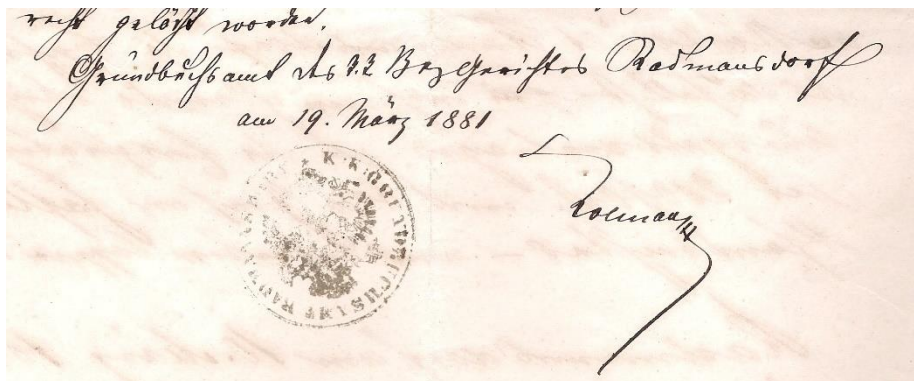 recht gelöscht worden.
Grundbuchsamt des k.k Bez Gerichtes Radmansdorf
am 19. März 1881
K: K: GRUNDBUCHSAMT RADMANNSDORF